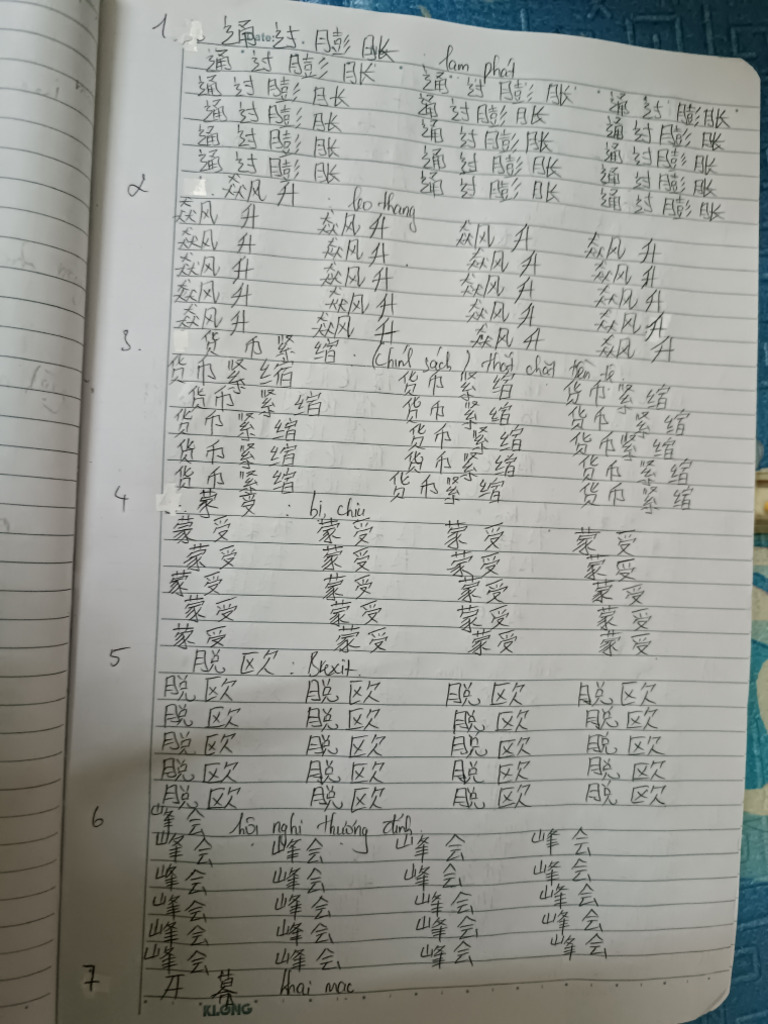 1. 通过膨胀
通过膨胀 : lạm phát 通过膨胀
通过膨胀 通过膨胀 通过膨胀
通过膨胀 通过膨胀 通过膨胀
通过膨胀 通过膨胀 通过膨胀
通过膨胀 通过膨胀 通过膨胀
2 焱风升 : leo thang
焱风升 焱风升 焱风升 焱风升
焱风升 焱风升 焱风升 焱风升
焱风升 焱风升 焱风升 焱风升
焱风升 焱风升 焱风升 焱风升
焱风升 焱风升 焱风升 焱风升
3. 货币紧缩 : (chính sách) thắt chặt tiền tệ
货币紧缩 货币紧缩 货币紧缩
货币紧缩 货币紧缩 货币紧缩
货币紧缩 货币紧缩 货币紧缩
货币紧缩 货币紧缩 货币紧缩
货币紧缩 货币紧缩 货币紧缩
4 蒙受 : bị, chịu
蒙受 蒙受 蒙受 蒙受
蒙受 蒙受 蒙受 蒙受
蒙受 蒙受 蒙受 蒙受
蒙受 蒙受 蒙受 蒙受
蒙受 蒙受 蒙受 蒙受
5 脱欧 : Brexit
脱欧 脱欧 脱欧 脱欧
脱欧 脱欧 脱欧 脱欧
脱欧 脱欧 脱欧 脱欧
脱欧 脱欧 脱欧 脱欧
脱欧 脱欧 脱欧 脱欧
6 峰会 hội nghị thượng đỉnh
峰会 峰会 峰会 峰会
峰会 峰会 峰会 峰会
峰会 峰会 峰会 峰会
峰会 峰会 峰会 峰会
峰会 峰会 峰会 峰会
7 开幕 khai mạc
KLONG